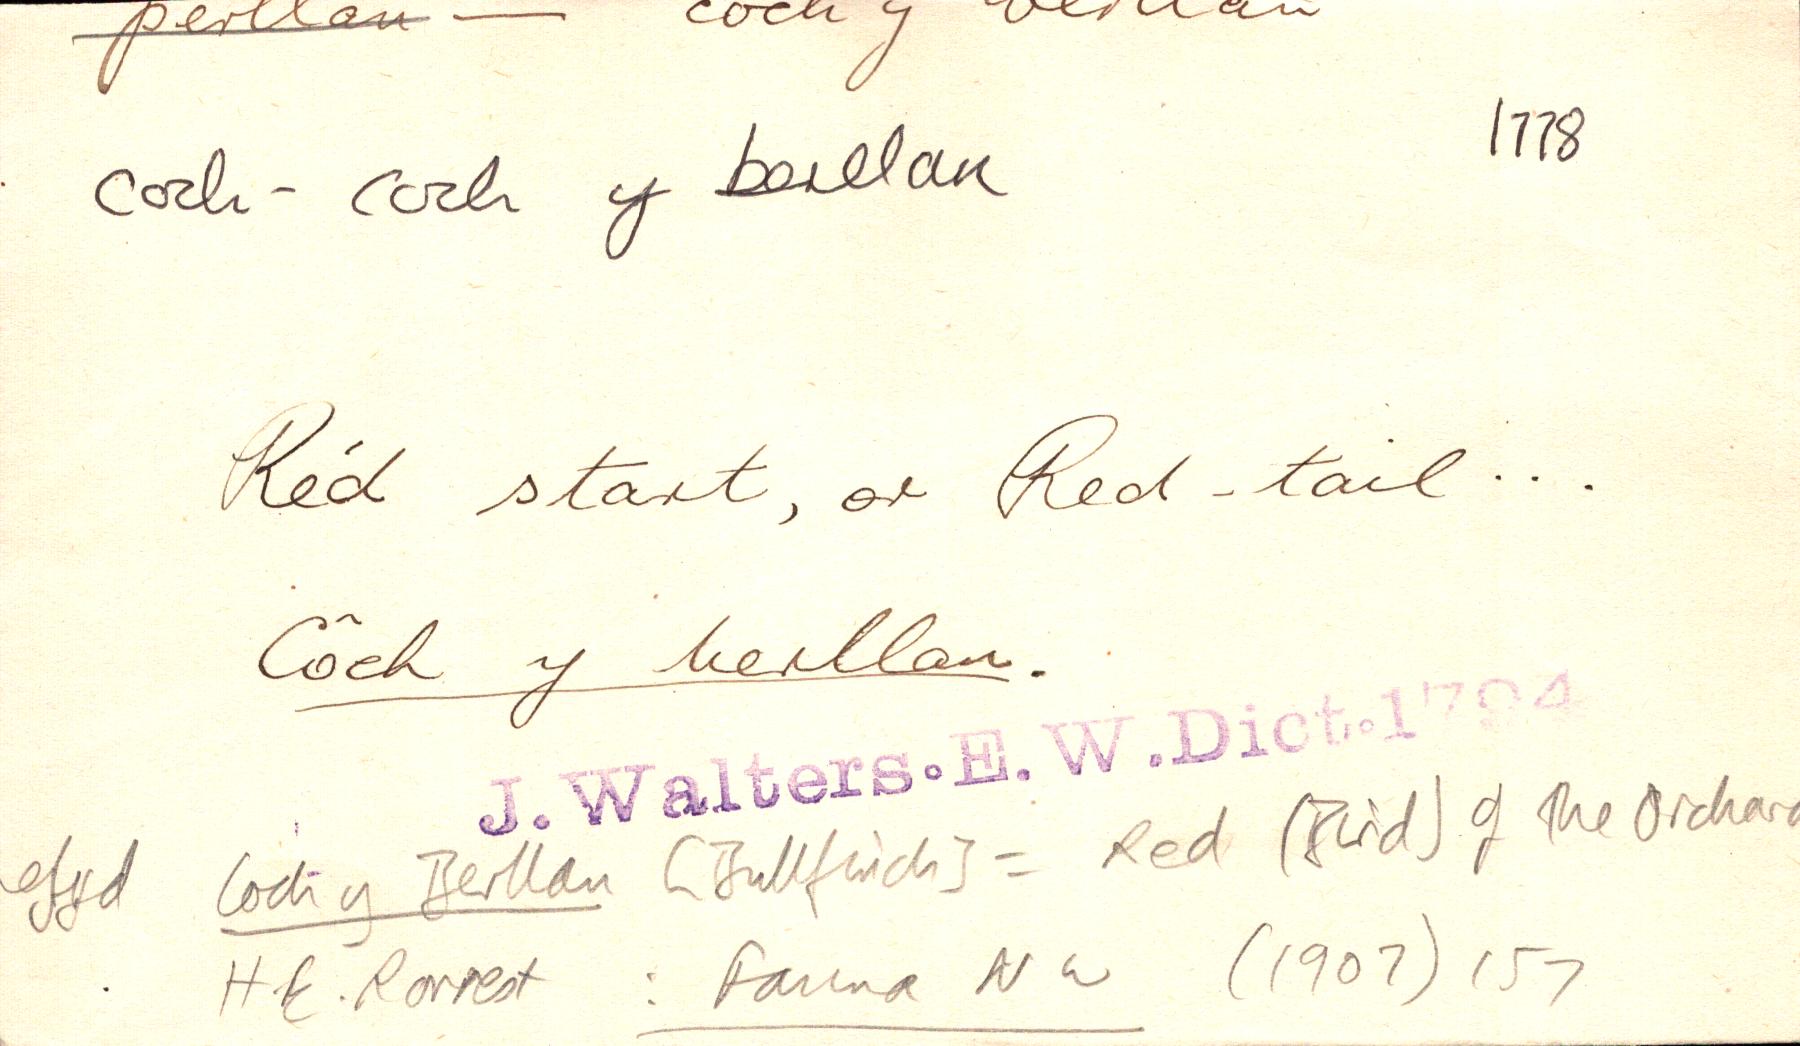 perllan — coch y berllan
1778
coch - coch y berllan
Red start, or Red-tail ...
Côch y berllan.
J. Walters. E. W. Dict. 1794
hefyd Coch y Berllan [Bullfinch] = Red (Bird) of the Orchard
H. E. Forrest : Fauna N W (1907) 157